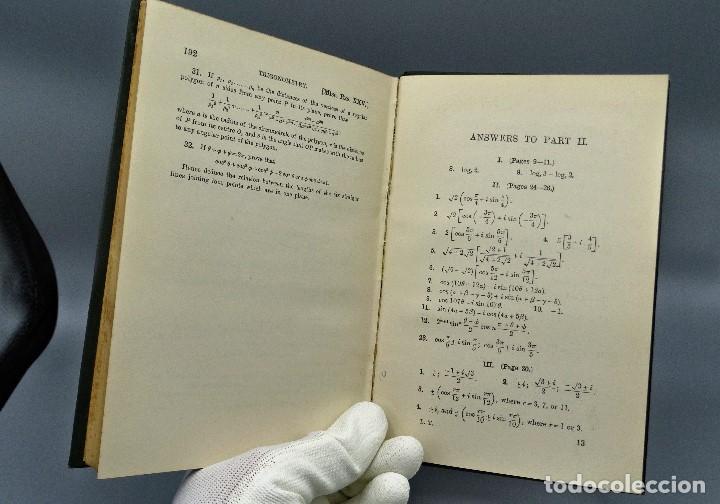 192
TRIGONOMETRY.
[Misc. Exs. XXXV.]
31. If p₁, p₂, ...... pₙ be the distances of the vertices of a regular
polygon of n sides from any point P in its plane, prove that
where a is the radius of the circumcircle of the polygon, r is the distance
of P from its centre O, and θ is the angle that OP makes with the radius
to any angular point of the polygon.
32. If θ+φ+ψ=2π, prove that
cos²θ+cos²φ+cos²ψ-2 cos θ cos φ cos ψ=1.
Hence deduce the relation between the lengths of the six straight
lines joining four points which are in one plane.
ANSWERS TO PART II.
I. (Pages 9—11.)
8. log, 2. 9. log, 3 - log, 2.
II. (Pages 24—26.)
1. √2 (cos π/4 + i sin π/4).
2. √2 [cos(-3π/4) + i sin(-3π/4)].
3. 2 [cos 5π/6 + i sin 5π/6]. 4. 5 [3/5 + i 4/5].
6. (√6-√2) [cos 5π/12 + i sin 5π/12].
7. cos (10θ+12α) - i sin (10θ+12α).
8. cos (α+β-γ-δ) + i sin (α+β-γ-δ).
9. cos 107θ - i sin 107θ. 10. -1.
11. sin (4α+5β) - i cos (4α+5β).
12.
III. (Page 30.)
1. ± i; (-1±i√3)/2. 2. ± i; (√3±i)/2; (-√3±i)/2.
3. ± (cos rπ/12 + i sin rπ/12), where r=3, 7, or 11.
4. ± i, and ± (cos rπ/10 ± i sin rπ/10), where r=1 or 3.
L. T. 13
todocoleccion